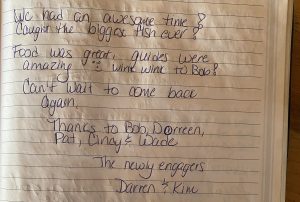 We had an awesome time !
Caught the biggest fish ever !
Food was great, guides were
amazing wink wink to Bob!
Can't wait to come back
Again,
Thanks to Bob, Dorreen,
Pat, Cindy & Wade
The newly engagers
Darren & Kim